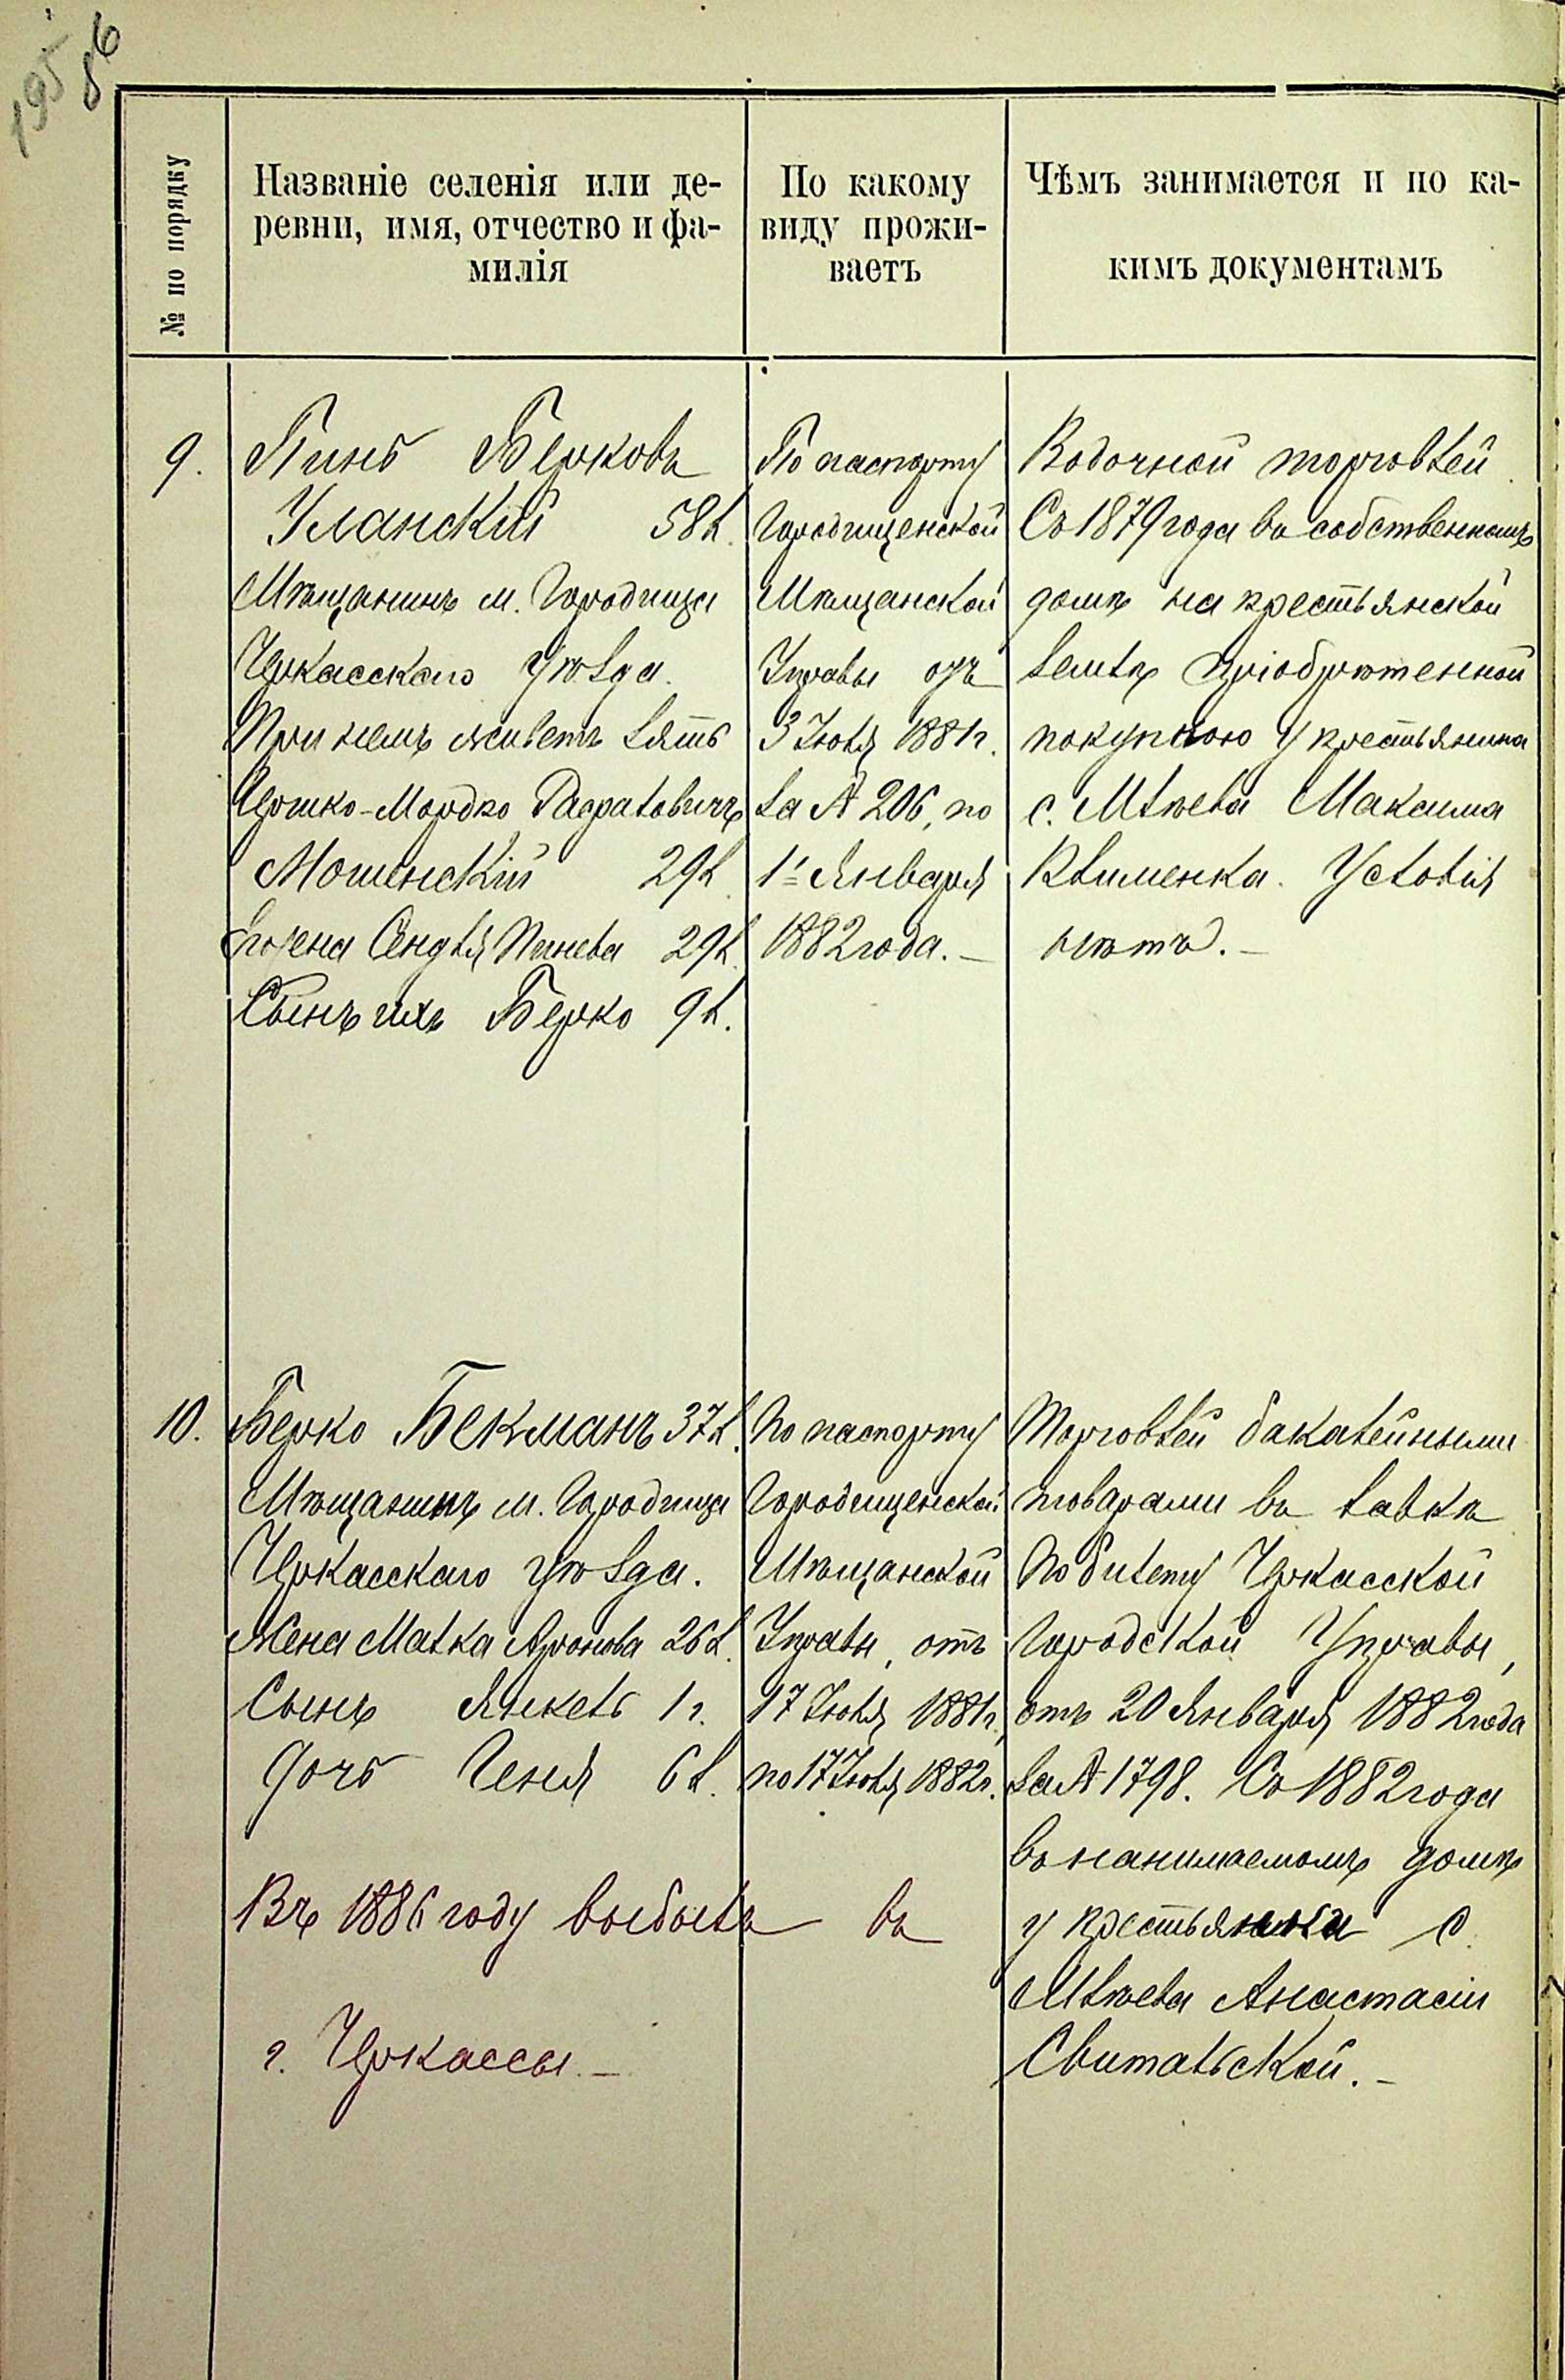 195
86
№ по порядку
Названіе селенія или де-
ревни, имя, отчество и фа-
милія
По какому
виду прожи-
ваетъ
Чѣмъ занимается и по ка-
кимъ документамъ
9.
Пинь Берковъ
Уланскій 58 л.
Мѣщанинъ м. Городища
Черкасскаго уѣзда.
При немъ живетъ зять
Іошко-Мордко Рафаловичъ
Мошенскій 29 л
его жена Сендля Пинева 29 л.
Сынъ ихъ Берко 9 л.
По паспорту
Городищенской
Мѣщанской
Управы отъ
3 Іюля 1881 г.
за № 206, по
1е Января
1882 года. —
Водочной торговлей
Съ 1879 года въ собственномъ
домѣ на крестьянской
землѣ пріобрѣтенной
покупкою у крестьянина
с. Млѣева Максима
Клименка. Условія
нѣтъ. —
10.
Берко Бекманъ 37 л.
Мѣщанинъ м. Городища
Черкасскаго уѣзда.
Жена Малка Аронова 26 л.
Сынъ Янкель 1 г.
Дочь Геня 6 л.
По паспорту
Городищенской
Мѣщанской
Управы, отъ
17 Іюля 1881 г.,
по 17 Іюля 1882 г.
Торговлей бакалейными
товарами въ лавкѣ
по билету Черкасской
Городской Управы,
отъ 20 Января 1882 года
за № 1798. Съ 1882 года
въ нанимаемомъ домѣ
у крестьянки с.
Млѣева Анастасіи
Свитальской. —
Въ 1886 году выбылъ въ
г. Черкассы. —